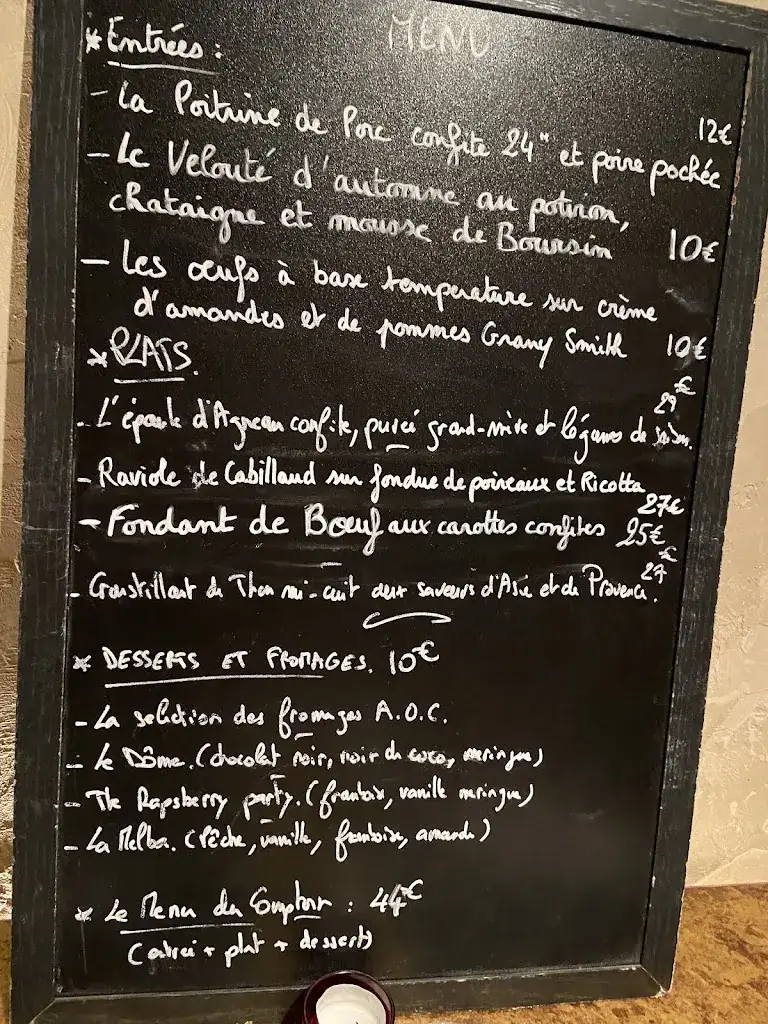 MENU
* Entrées :
- La Poitrine de Porc confite 24H et poire pochée 12€
- Le Velouté d'automne au potiron,
chataigne et mousse de Boursin 10€
- Les œufs à base temperature sur crème
d'amandes et de pommes Grany Smith 10€
* PLATS.
- L'épaule d'Agneau confite, purée grand-mère et légumes de saison. 29€
- Raviole de Cabillaud sur fondue de poireaux et Ricotta 27€
- Fondant de Bœuf aux carottes confites 25€
- Croustillant de Thon mi-cuit aux saveurs d'Asie et de Provence. 27€
* DESSERTS ET FROMAGES. 10€
- La selection des fromages A.O.C.
- Le Dôme. (chocolat noir, noix de coco, meringue)
- The Rapsberry party. (framboise, vanille meringue)
- La Melba. (Pêche, vanille, framboise, amande)
* Le Menu du Comptoir : 44€
(entrée + plat + dessert)